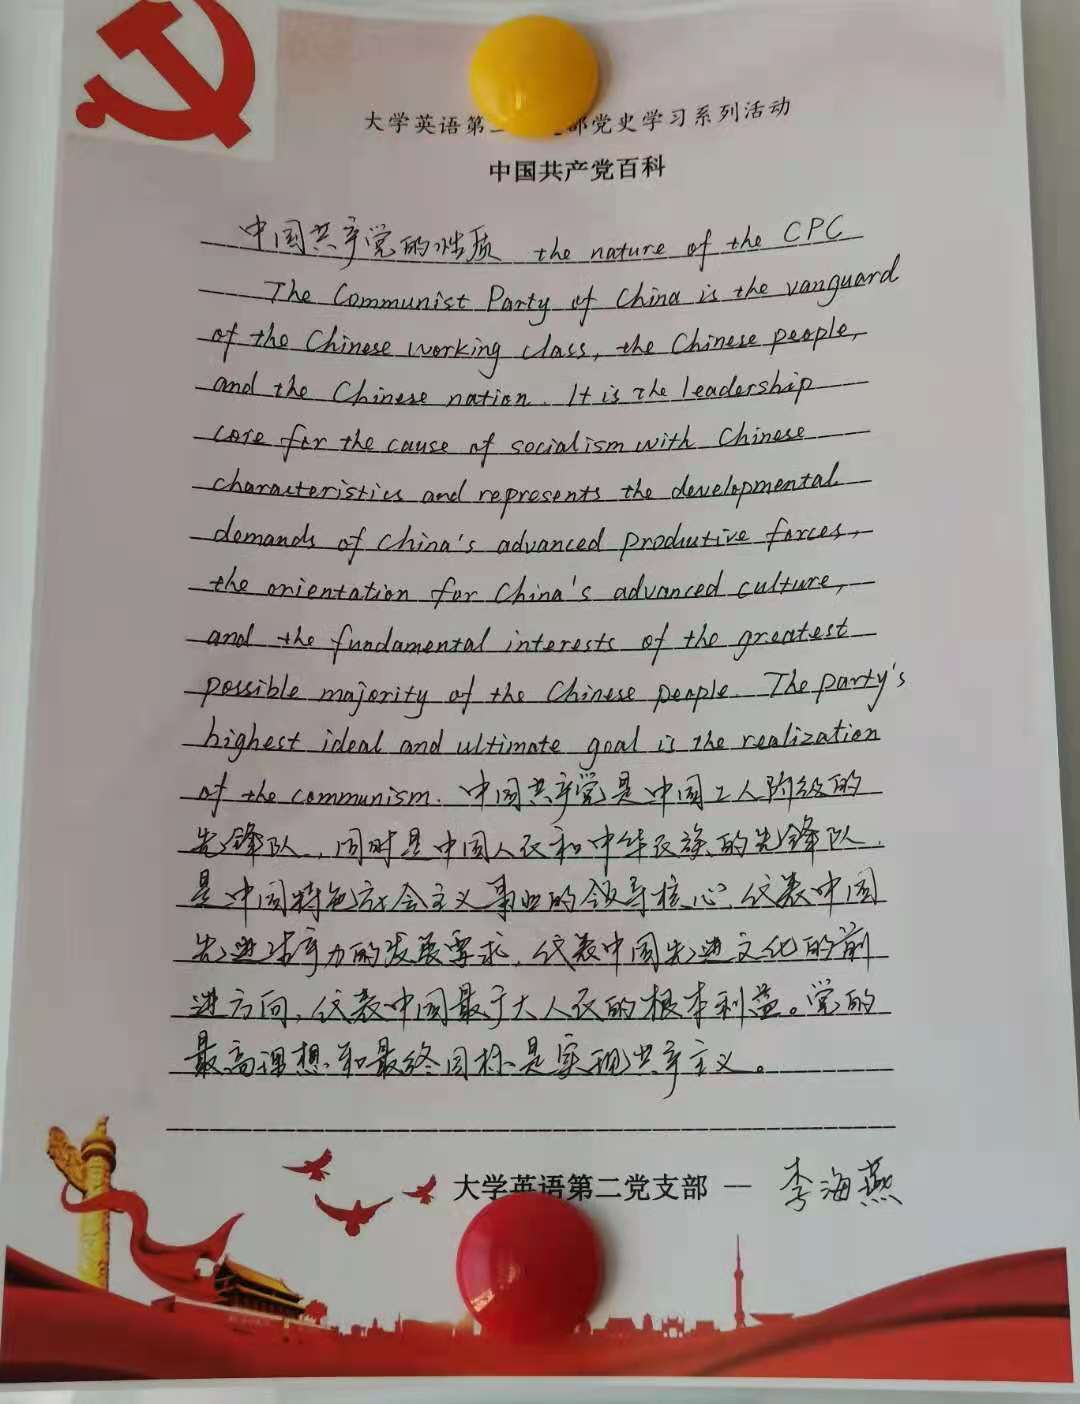 大学英语第二党支部党史学习系列活动
中国共产党百科
中国共产党的性质 the nature of the CPC
The Communist Party of China is the vanguard
of the Chinese working class, the Chinese people,
and the Chinese nation. It is the leadership
core for the cause of socialism with Chinese
characteristics and represents the developmental
demands of China's advanced productive forces,
the orientation for China's advanced culture,
and the fundamental interests of the greatest
possible majority of the Chinese people. The party's
highest ideal and ultimate goal is the realization
of the communism. 中国共产党是中国工人阶级的
先锋队，同时是中国人民和中华民族的先锋队，
是中国特色社会主义事业的领导核心，代表中国
先进生产力的发展要求，代表中国先进文化的前
进方向，代表中国最广大人民的根本利益。党的
最高理想和最终目标是实现共产主义。
大学英语第二党支部 — 李海燕